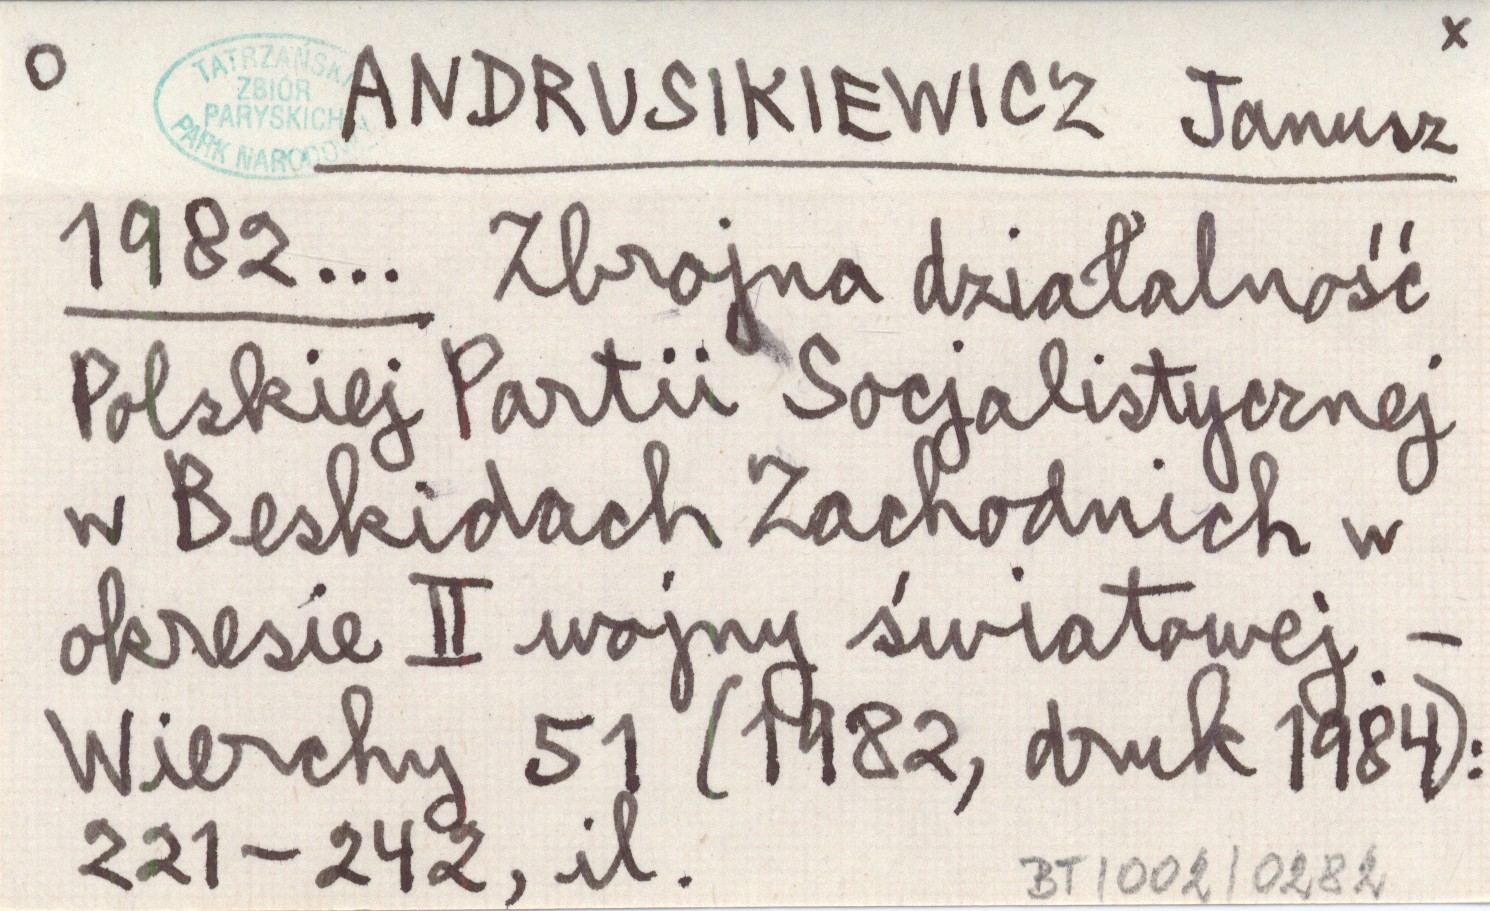 O x
TATRZAŃSKI
ZBIÓR
PARYSKICH
PARK NARODOWY
ANDRUSIKIEWICZ Janusz
1982... Zbrojna działalność
Polskiej Partii Socjalistycznej
w Beskidach Zachodnich w
okresie II wojny światowej. –
Wierchy 51 (1982, druk 1984):
221–242, il.
BT/002/0282